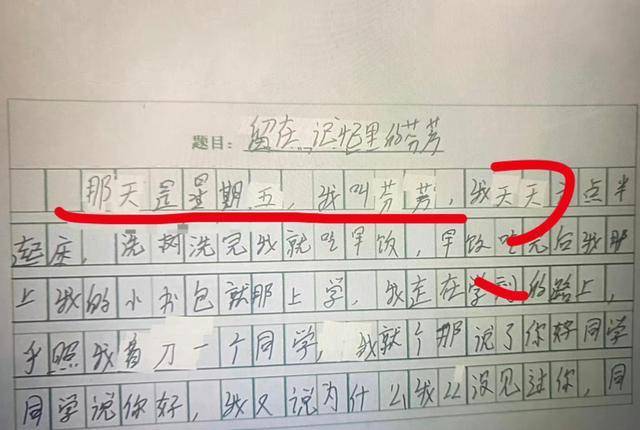 题目：留在记忆里的芬芳
那天是星期五，我叫芳芳，我天天 点半
起床，洗树洗完我就吃早饭，早饭吃完后我那
上我的小书包就那上学，我走在学到的路上，
乎照我看刀一个同学，我就个那说了你好同学
同学说你好，我又说为什么我么没见过你，同